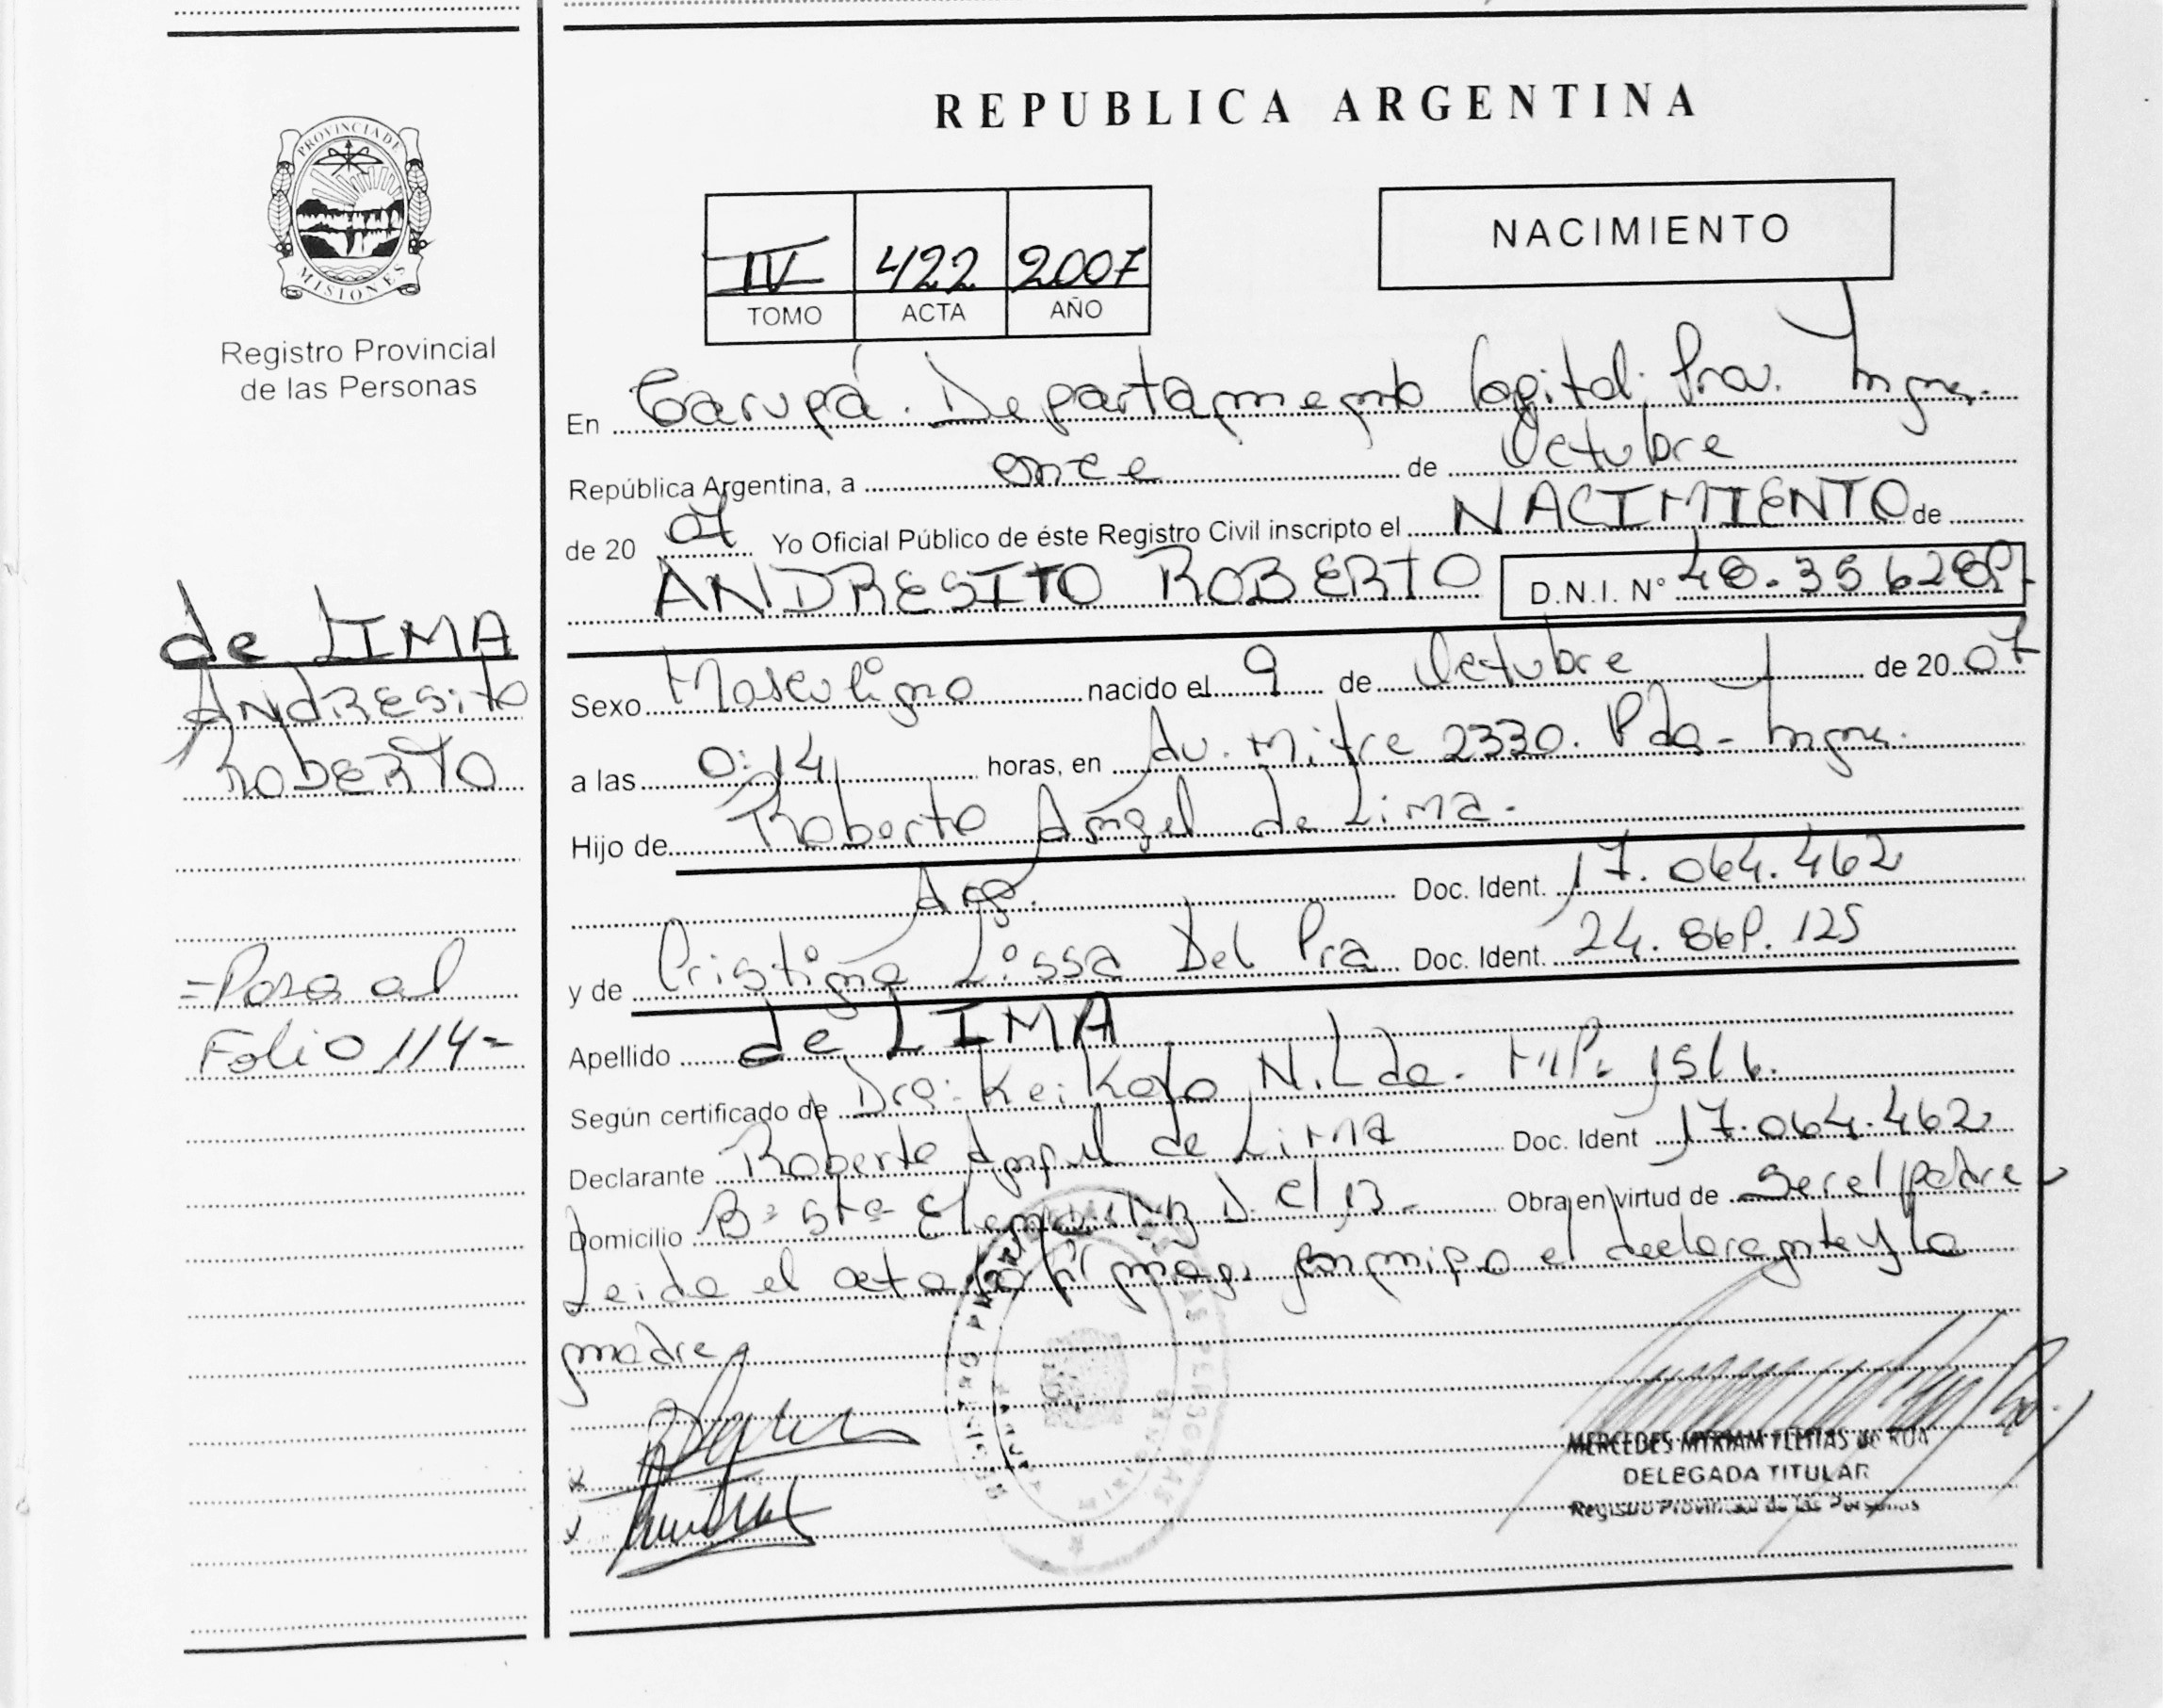 PROVINCIA DE
MISIONES
Registro Provincial
de las Personas
de LIMA
ANdRESito
RobERTO
=Pasa al
Folio 114=
REPUBLICA ARGENTINA
IV 422 2007
TOMO ACTA AÑO
NACIMIENTO
En Garupá. Departamento Capital; Prov. Mnes.
República Argentina, a once de Octubre
de 2007 Yo Oficial Público de éste Registro Civil inscripto el NACIMIENTO de
ANDRESITO ROBERTO D.N.I. Nº
Sexo Masculino nacido el 9 de Octubre de 2007
a las 0:14 horas, en Av. Mitre 2330. Pdas- Mnes.
Hijo de Roberto Angel de Lima.
Arg. Doc. Ident. 17.064.462
y de Cristina Lissa Del Pra Doc. Ident. 24.869.125
Apellido de LIMA
Según certificado de Dra: Kei Kato Nilda. M.P.
Declarante Roberto Angel de Lima Doc. Ident 17.064.462
Domicilio Bº Sta Elena Mz D. C/13- Obra en virtud de Ser el padre
Leida el acta la firman conmigo el declarante y la
madre
x
x
MERCEDES MYRIAM FLEITAS de ROA
DELEGADA TITULAR
Registro Provincial de las Personas